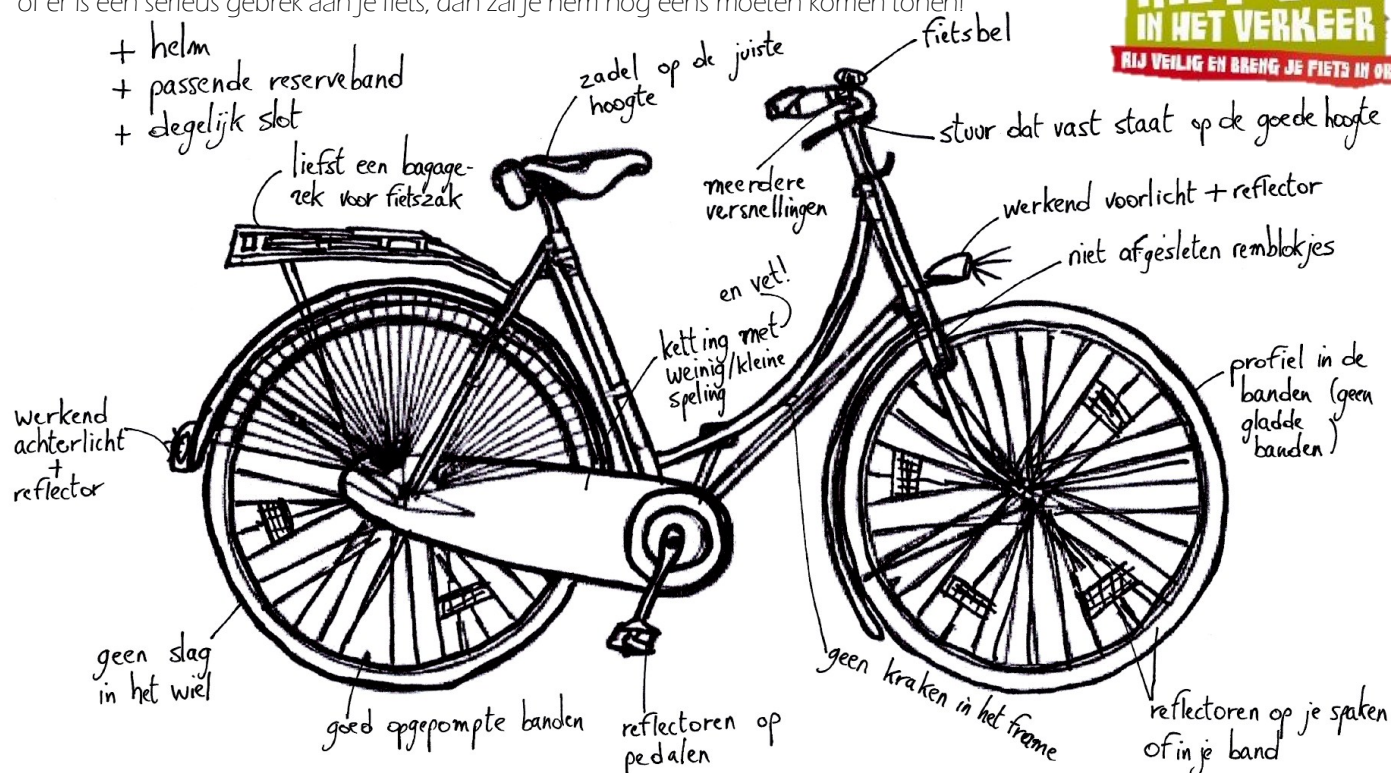 of er is een serieus gebrek aan je fiets, dan zal je hem nog eens moeten komen tonen!
IN HET VERKEER
RIJ VEILIG EN BRENG JE FIETS IN OR
+ helm
+ passende reserveband
+ degelijk slot
zadel op de juiste
hoogte
fietsbel
stuur dat vast staat op de goede hoogte
liefst een bagage-
rek voor fietszak
meerdere
versnellingen
werkend voorlicht + reflector
niet afgesleten remblokjes
en vet!
ketting met
weinig/kleine
speling
profiel in de
banden (geen
gladde
banden)
werkend
achterlicht
+
reflector
geen slag
in het wiel
goed opgepompte banden
reflectoren op
pedalen
geen kraken in het frame
reflectoren op je spaken
of in je band